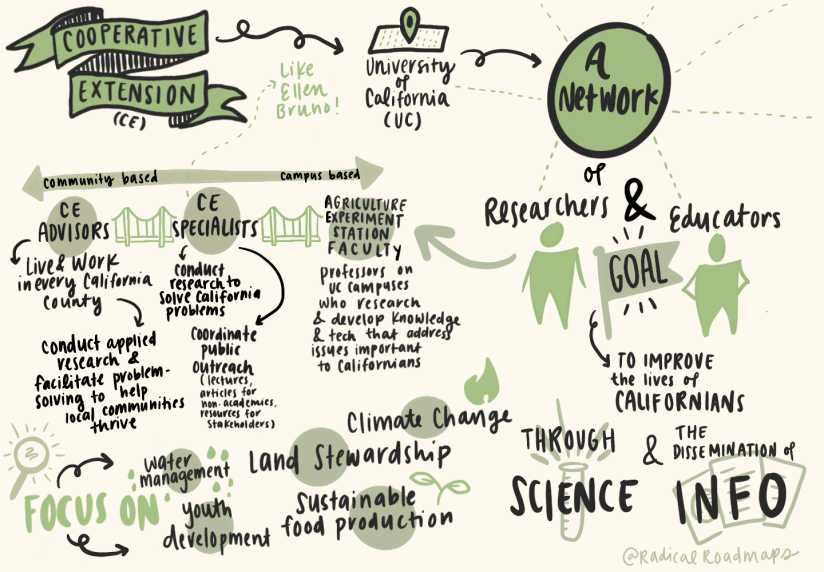 COOPERATIVE
EXTENSION
(CE)
Like
Ellen
Bruno!
University
of
California
(UC)
A
Network
of
Researchers & Educators
GOAL
TO IMPROVE
the lives of
CALIFORNIANS
THROUGH
SCIENCE
& THE
DISSEMINATION of
INFO
community based
campus based
CE
ADVISORS
Live & Work
in every California
County
conduct applied
research &
facilitate problem-
solving to help
local communities
thrive
CE
SPECIALISTS
conduct
research to
solve California
problems
Coordinate
public
outreach
(lectures,
articles for
non-academics,
resources for
stakeholders)
AGRICULTURE
EXPERIMENT
STATION
FACULTY
professors on
UC campuses
who research
& develop knowledge
& tech that address
issues important
to Californians
FOCUS ON
water
management
youth
development
Land Stewardship
Climate Change
Sustainable
food production
@Radical Roadmaps